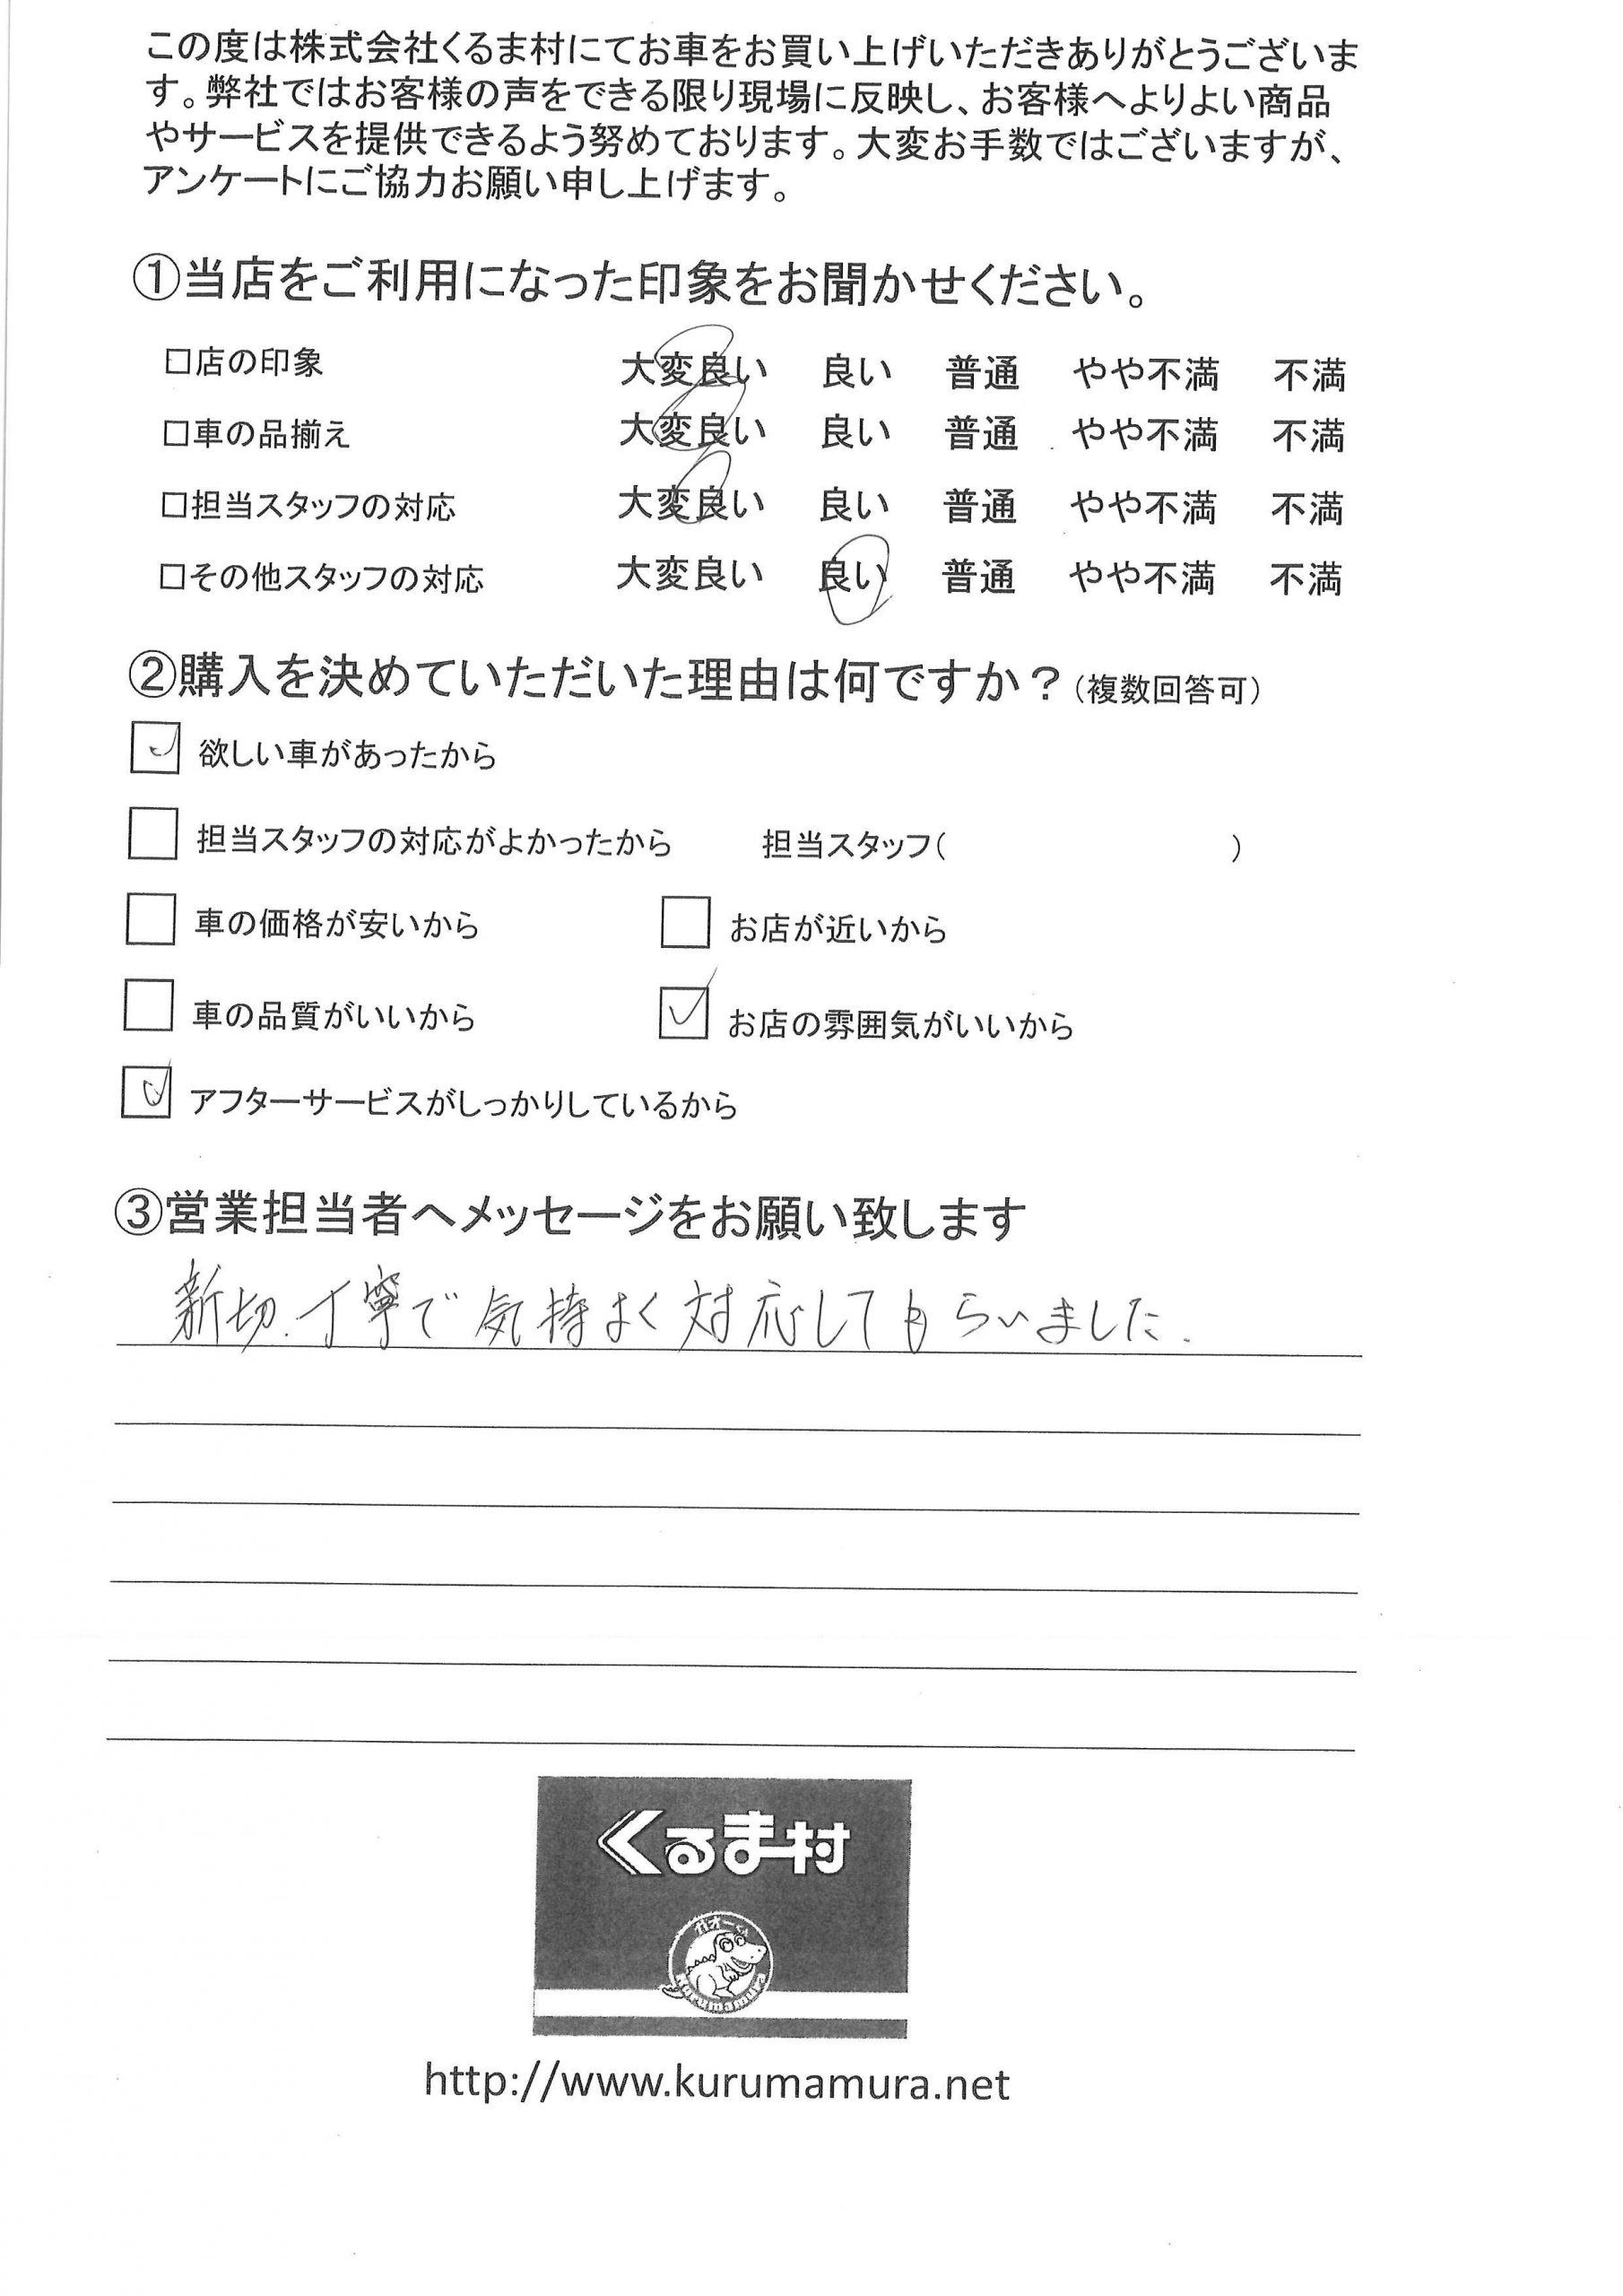 この度は株式会社くるま村にてお車をお買い上げいただきありがとうございま
す。弊社ではお客様の声をできる限り現場に反映し、お客様へよりよい商品
やサービスを提供できるよう努めております。大変お手数ではございますが、
アンケートにご協力お願い申し上げます。
①当店をご利用になった印象をお聞かせください。
□店の印象 大変良い 良い 普通 やや不満 不満
□車の品揃え 大変良い 良い 普通 やや不満 不満
□担当スタッフの対応 大変良い 良い 普通 やや不満 不満
□その他スタッフの対応 大変良い 良い 普通 やや不満 不満
②購入を決めていただいた理由は何ですか？(複数回答可)
欲しい車があったから
担当スタッフの対応がよかったから 担当スタッフ( )
車の価格が安いから お店が近いから
車の品質がいいから お店の雰囲気がいいから
アフターサービスがしっかりしているから
③営業担当者へメッセージをお願い致します
新切.丁寧で気持よく対応してもらいました.
くるま村
ガオーくん
kurumamura
http://www.kurumamura.net